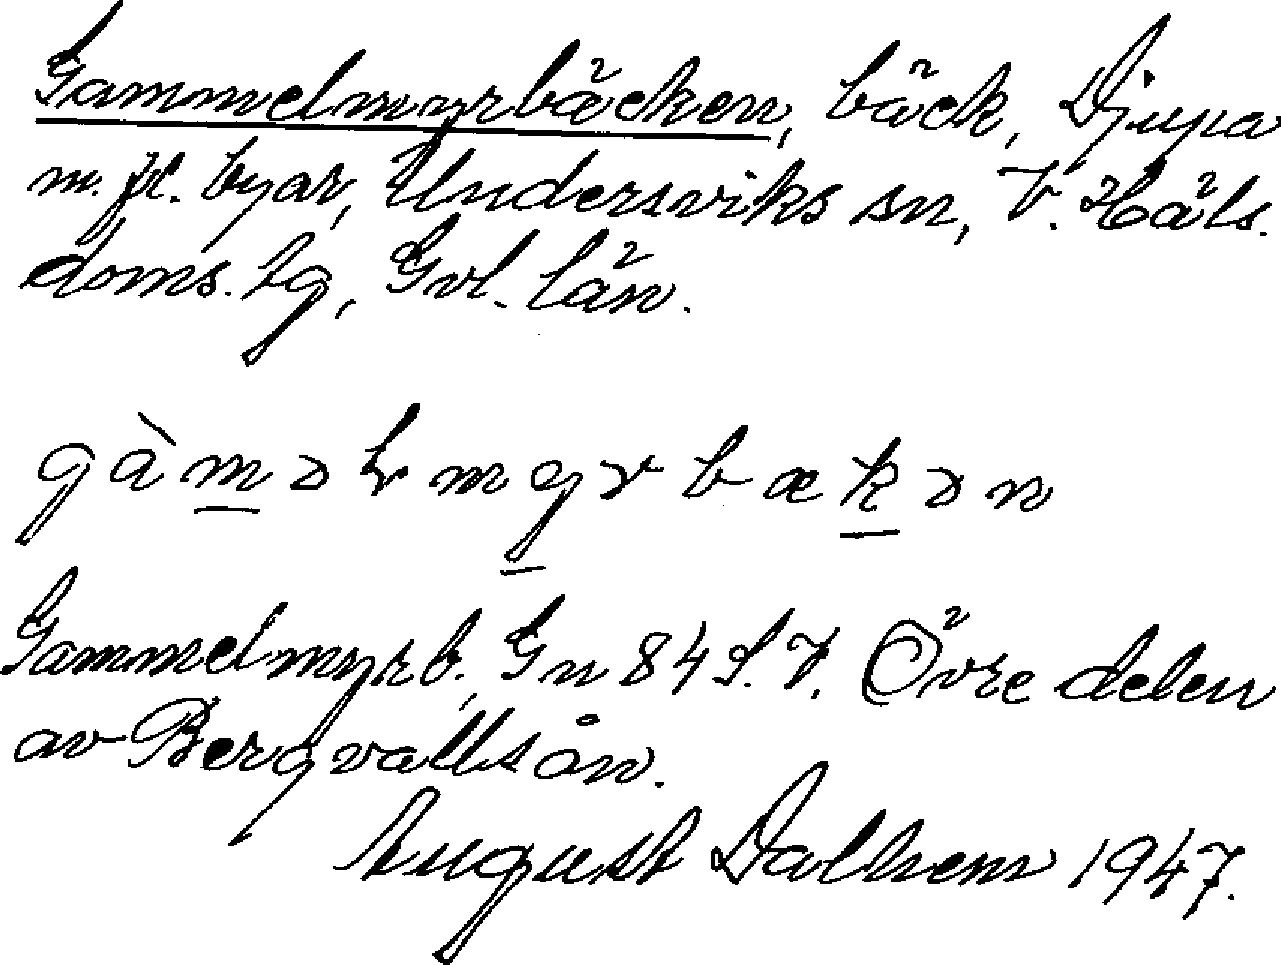 Gammelmyrbäcken, bäck, Djupa
m. fl. byar, Undersviks sn, V. Häls.
doms. tg, Gvl. län.
gàməlmyrbækən
Gammelmyrb., Gn 84 S.V. Övre delen
av Bergvallsån.
August Dalhem 1947.